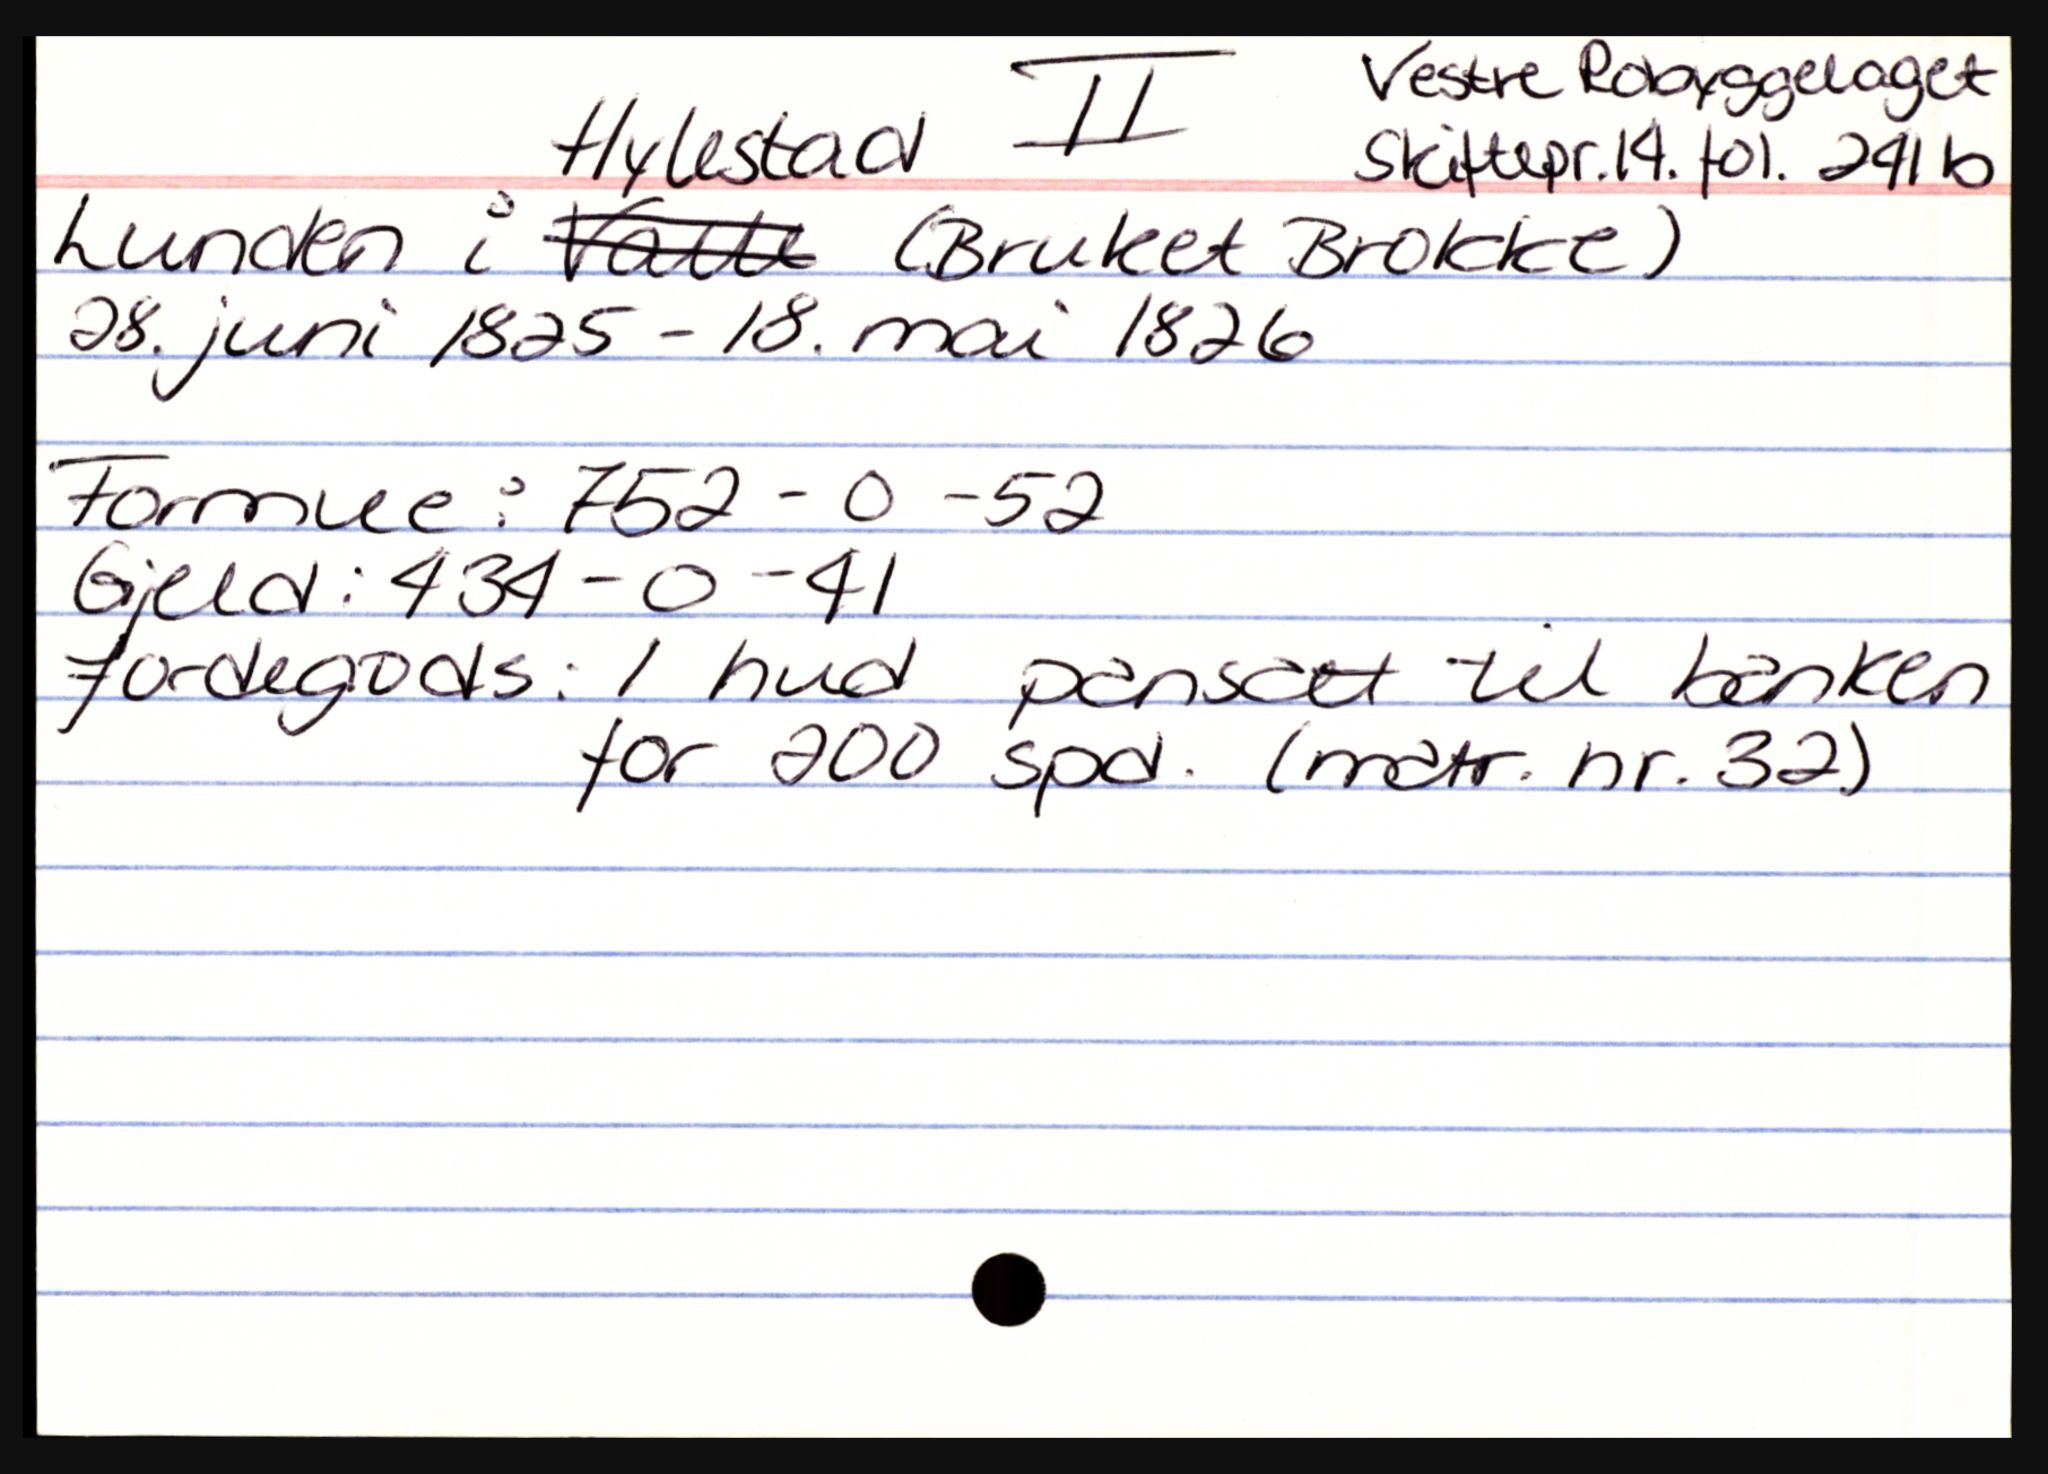 II
Vestre Robyggelaget
Hylestad
Skiftepr. 14. fol. 241 b
Lunden i (Bruket Brokke)
28. juni 1825 - 18. mai 1826
Formue: 752 - 0 - 52
Gjeld: 434 - 0 - 41
Jordegods: 1 hud pansatt til banken
for 200 spd. (matr. nr. 32)